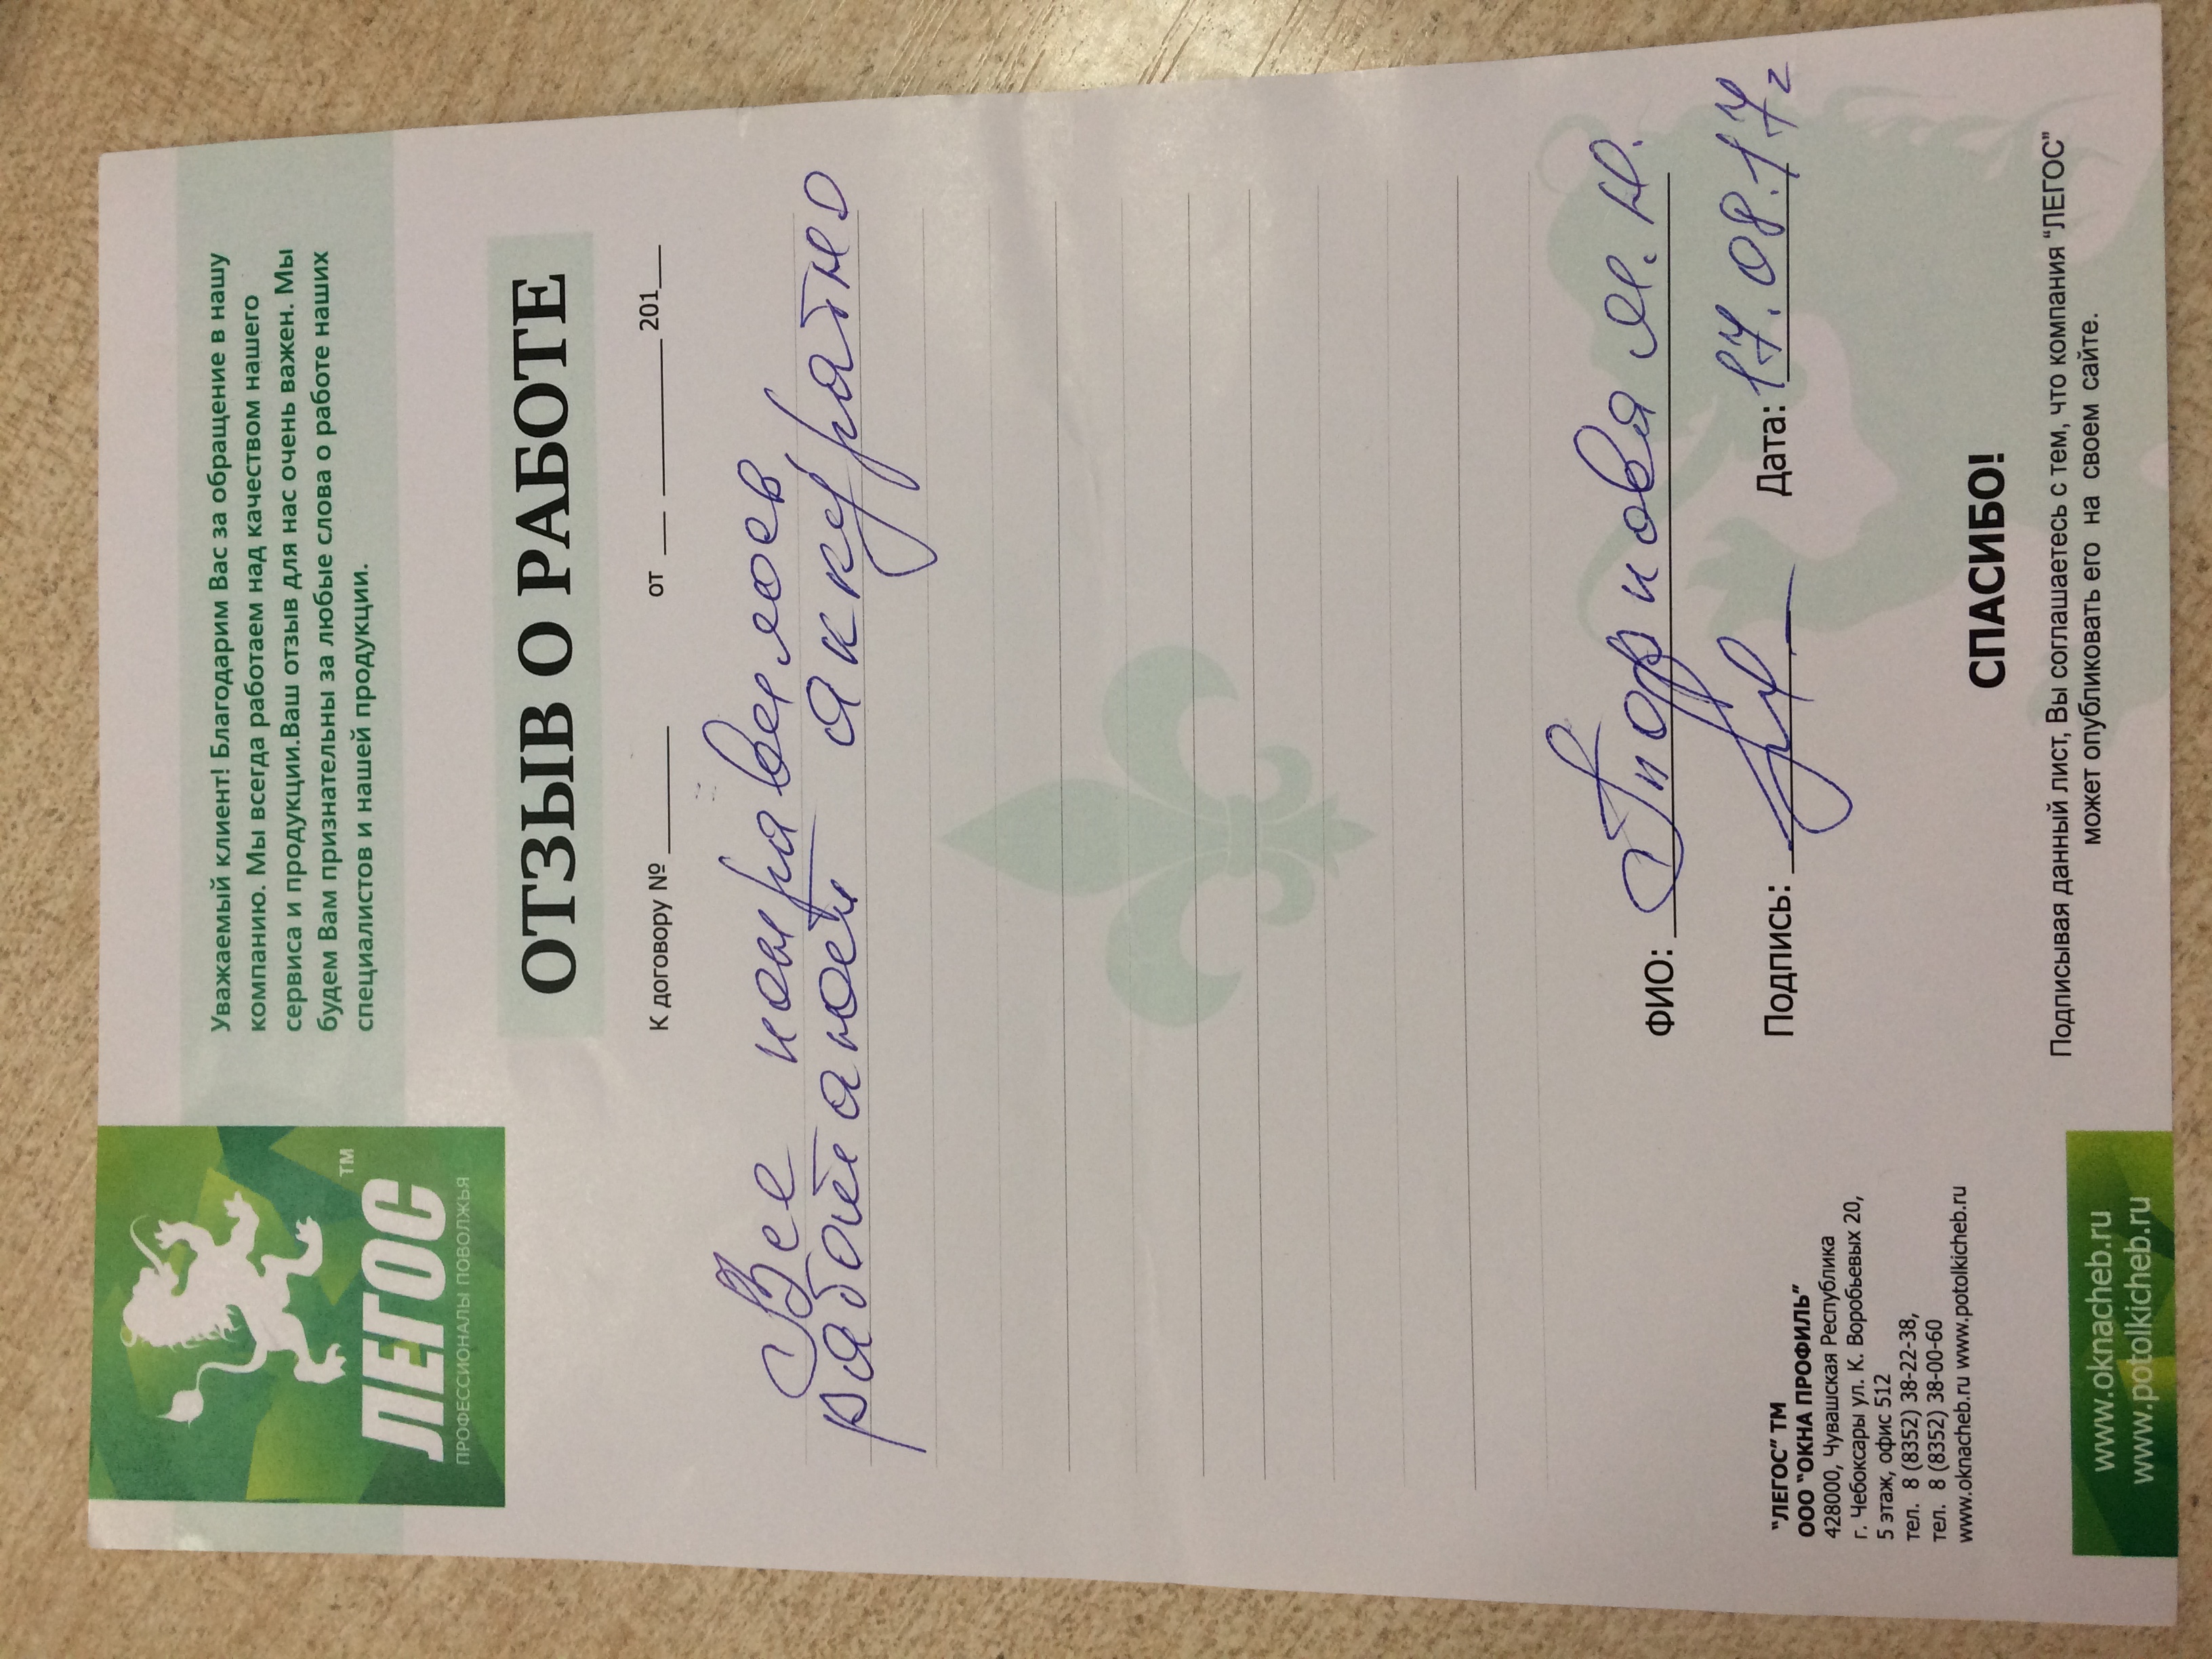 ЛЕГОС
TM
ПРОФЕССИОНАЛЫ ПОВОЛЖЬЯ
Уважаемый клиент! Благодарим Вас за обращение в нашу
компанию. Мы всегда работаем над качеством нашего
сервиса и продукции.Ваш отзыв для нас очень важен. Мы
будем Вам признательны за любые слова о работе наших
специалистов и нашей продукции.
ОТЗЫВ О РАБОТЕ
К договору № ________ от ___ __________ 201___
Все понравилось,
работают аккуратно
ФИО: М. Н.
Подпись:
Дата: 17.08.17г
"ЛЕГОС" ТМ
ООО "ОКНА ПРОФИЛЬ"
428000, Чувашская Республика
г. Чебоксары ул. К. Воробьевых 20,
5 этаж, офис 512
тел. 8 (8352) 38-22-38,
тел. 8 (8352) 38-00-60
www.oknacheb.ru www.potolkicheb.ru
СПАСИБО!
Подписывая данный лист, Вы соглашаетесь с тем, что компания "ЛЕГОС"
может опубликовать его на своем сайте.
www.oknacheb.ru
www.potolkicheb.ru